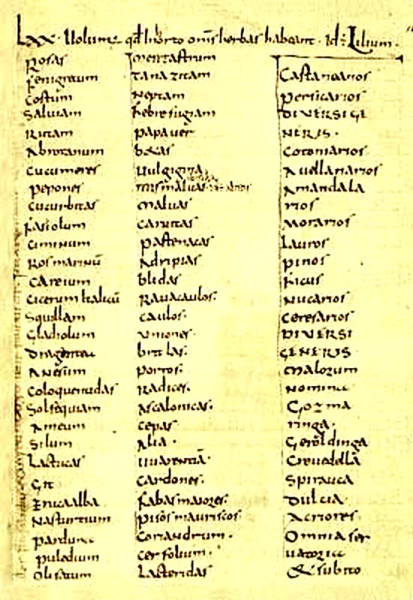 LXX. Uolum; qđ in horto om̄s herbas habeant. Id; Lilium.
Rosas
fenigrecum
Costum
Saluiam
Rutam
Abrotanum
Cucumeres
Pepones
Cucurbitas
fasiolum
Ciminum
Rosmarinū
Careium
Cicerum Italicū
Squillam
Gladiolum
Dragantea
Anesum
Coloquentidas
Solsequiam
Ameum
Silum
Lactucas
Git
Eruca alba
Nasturtium
Parduna
Puledium
Olisatum
Mentastrum
tanazitam
Neptam
febrefugiam
papauer
betas
Uulgigina
mismaluas
maluas
Caruitas
pastenacas
Adripias
blidas
Rauacaulos.
Caulos.
Uniones.
britlas.
porros.
Radices.
Ascalonicas.
Cepas.
Alia.
Uuarentiā.
Cardones.
fabas maiores.
pisos mauriscos.
Coriandrum.
Cerfolium.
Lacteridas
Castanearios
Persicarios
DIVERSI GE
NERIS.
Cotoniarios
Auellanarios
Amandala
rios
Morarios
Lauros
pinos
ficus
Nucarios
Ceresarios
DIVERSI
GENERIS.
Malorum
Nomina
Gozma
ringa.
Geroldinga
Creuedella
Spirauca
Dulcia
Acriores
Omnia ser
uatoria
& subito